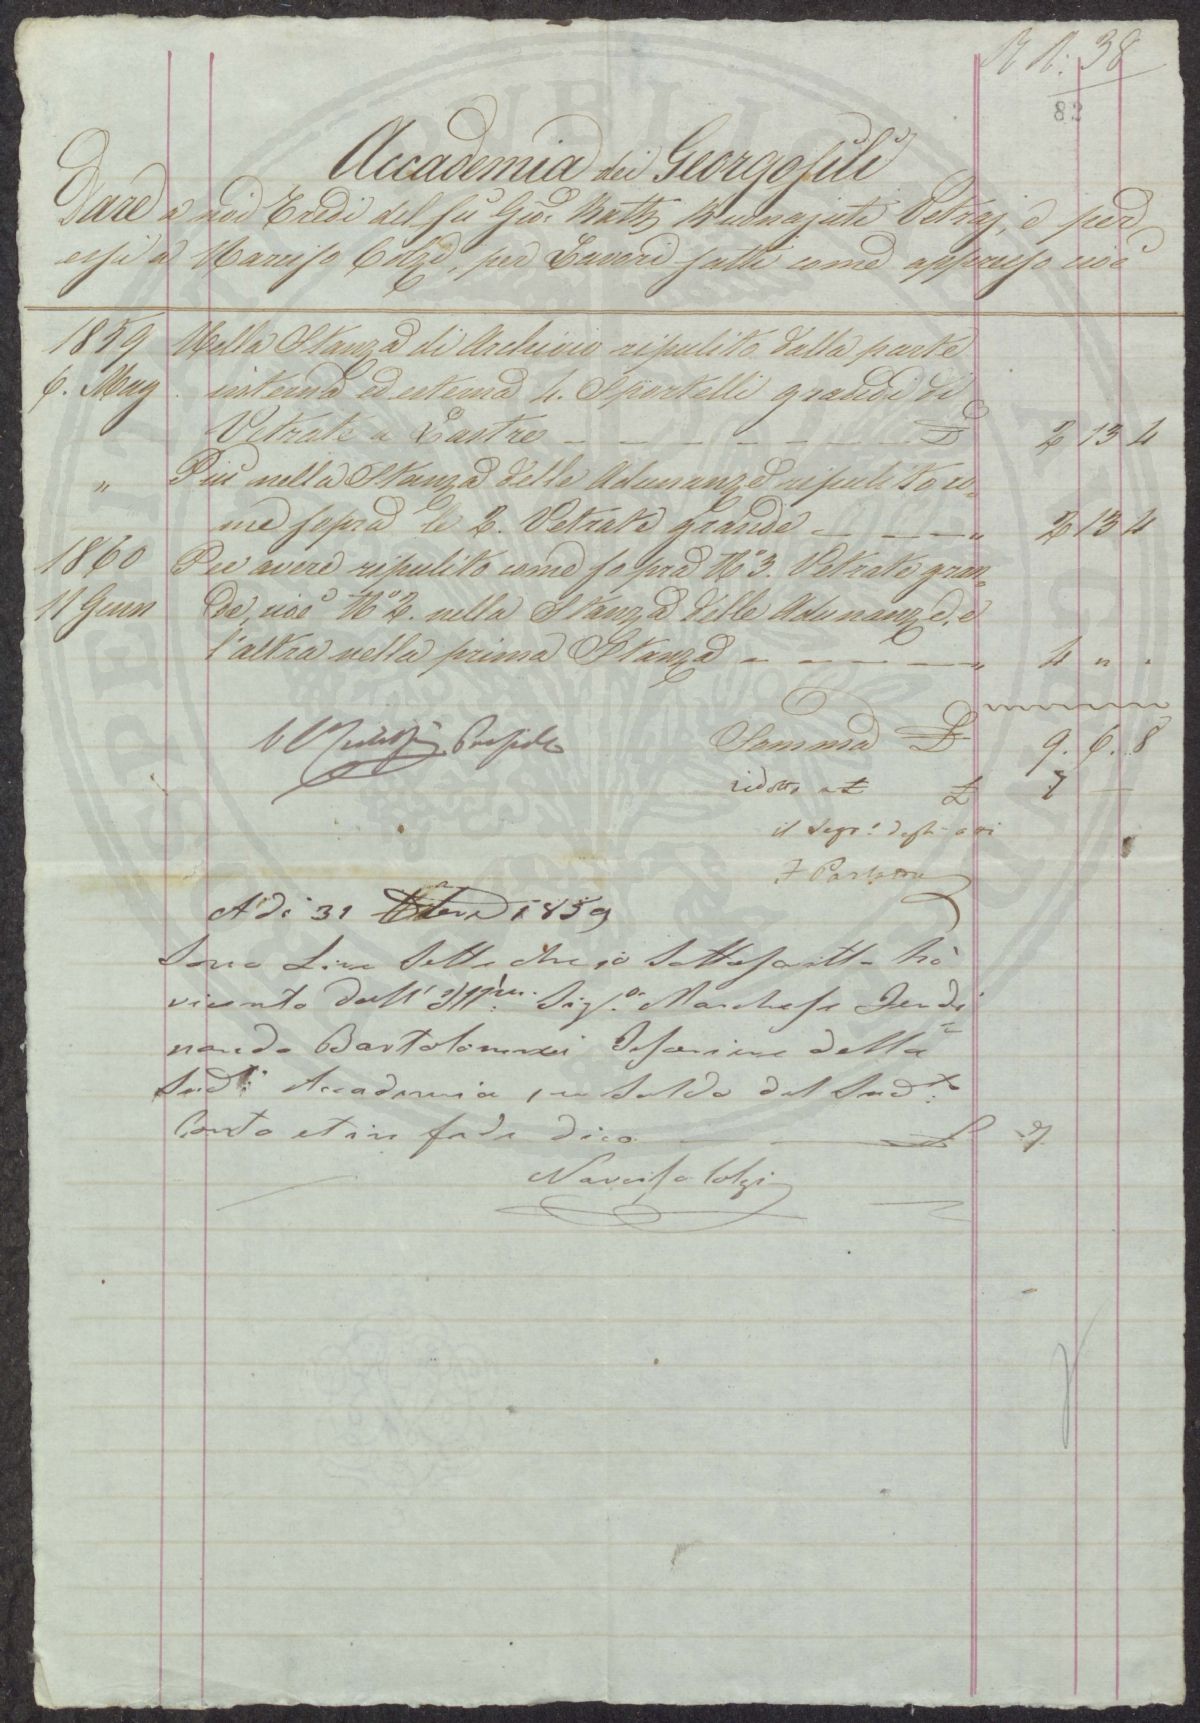 R N: 38
82
Accademia dei Georgofili
Dare a noi Eredi del fu Gio: Batt: Buonajuti Vetraj, e per
essi a Narciso Colzi, per Lavori fatti come appresso cioè
1859 Nella Stanza di Archivio ripulito dalla parte
6. Mag interna ed esterna 4. Sportelli grandi di
Vetrate a Lastre £ 2 13 4
" Più nella Stanza delle Adunanze ripulito co-
me sopra le 2. Vetrate grande " 2 13 4
1860 Per avere ripulito come sopra N° 3. Vetrate gran-
11 Genn de, cioè N° 2. nella Stanza delle Adunanze, e
l'altra nella prima Stanza " 4 " .
Presidte
Somma £ 9. 6. 8
ridotto a £ £ 7 —
il Segr: degli atti
A di 31 1859
Sono Lire Sette che io Sottoscritto hò
ricevuto dall' Illmo: Sigr. Marchese Ferdi
nando Bartolommei Tesoriere della
Sudta: Accademia per Saldo del Sudto:
Conto et in fede dico £ 7
Narciso Colzi